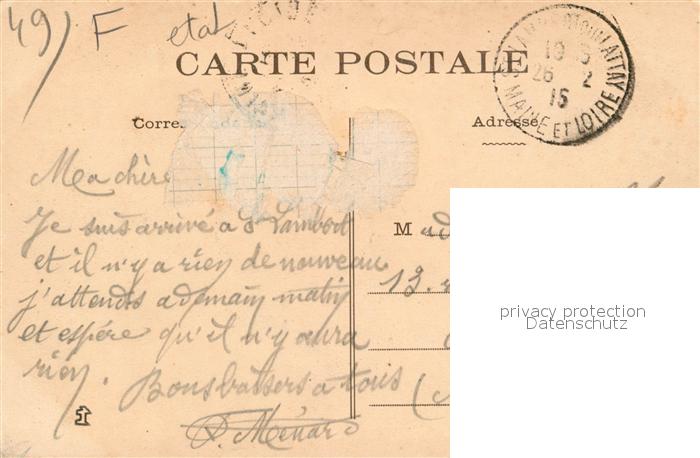 49) F etal
CARTE POSTALE
ST LAMBERT DU LATTAY
10 5
26 2
15
MAINE ET LOIRE
Corre
Adresse
Ma chère
Je suis arrivé a St Lambert
et il n'y a rien de nouveau
j'attends a demain matin
et espère qu'il n'y aura
rien.
Bons baisers a tous
P. Ménard
Mad
13. r
privacy protection
Datenschutz